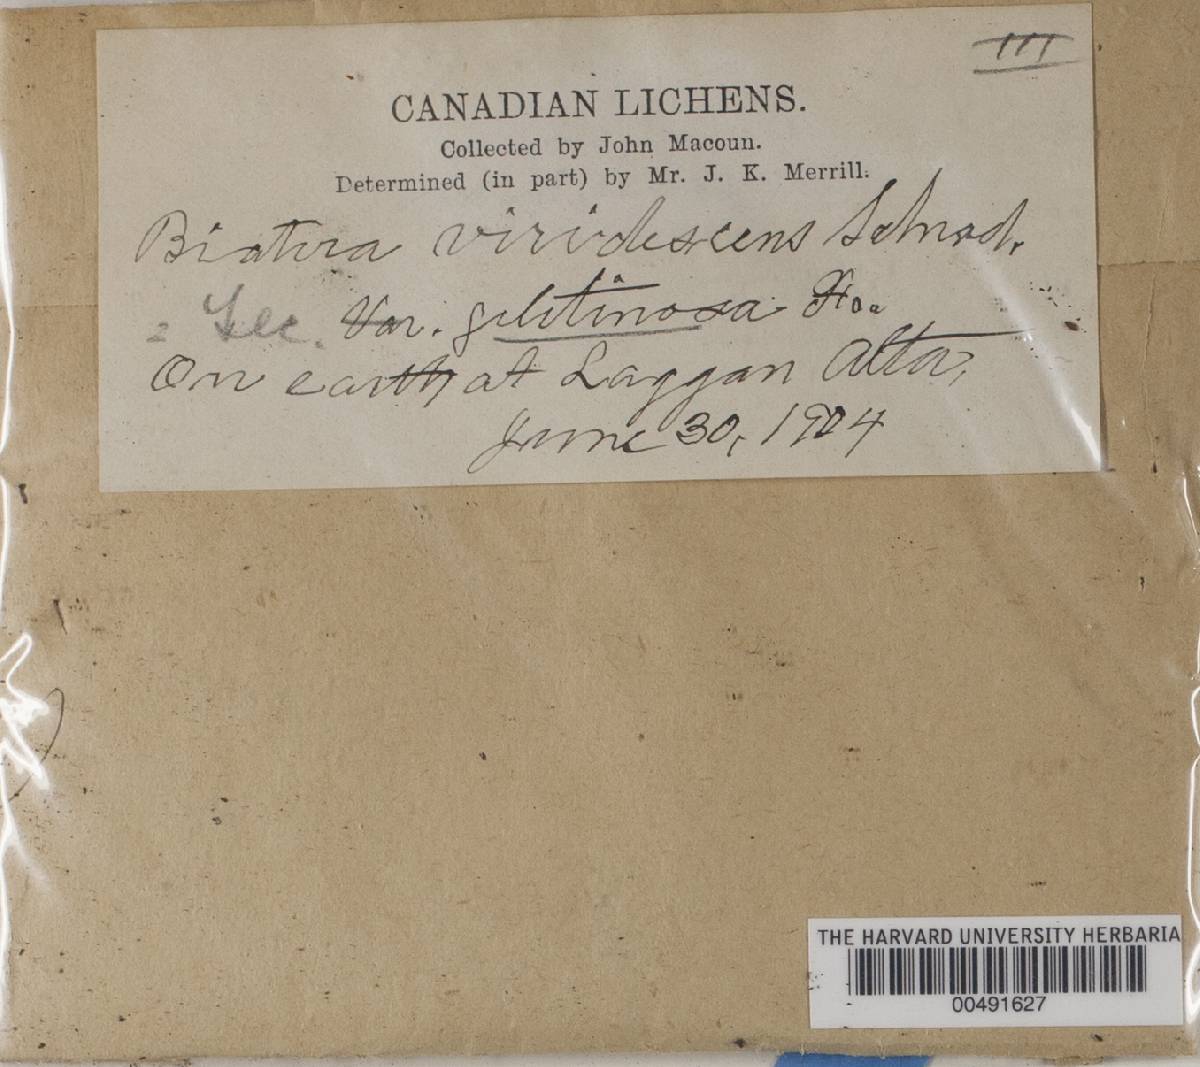 III
CANADIAN LICHENS.
Collected by John Macoun.
Determined (in part) by Mr. J. K. Merrill.
Biatora viridescens Schrad.
Lec. Var. gelitinosa Flo.
On earth at Laggan Alta,
June 30, 1904
THE HARVARD UNIVERSITY HERBARIA
00491627